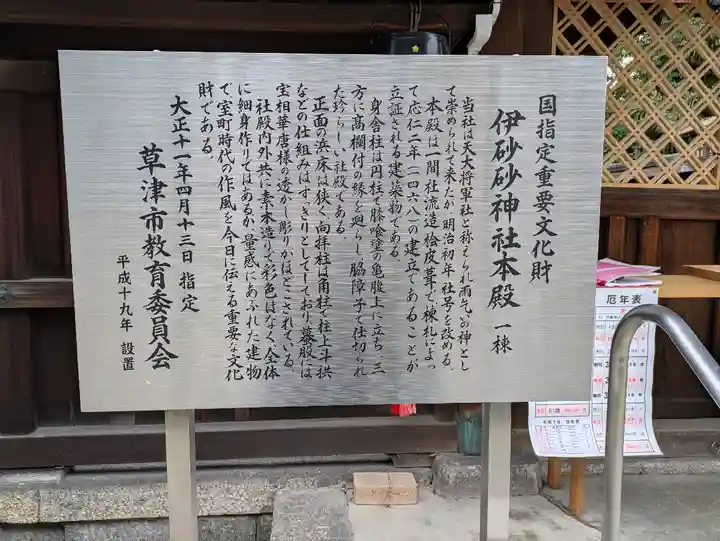 国指定重要文化財
伊砂砂神社本殿 一棟
当社は天大将軍社と称えられ雨乞の神とし
て崇められて来たが明治初年社号を改める。
本殿は一間社流造、桧皮葺で、棟札によっ
て応仁二年(一四六八)の建立であることが
立証される建築物である。
身舎柱は円柱で漆喰塗の亀腹上に立ち、三
方に高欄付の縁を廻らし、脇障子で仕切られ
た珍らしい社殿である。
正面の浜床は狭く、向拝柱は角柱で柱上斗拱
などの仕組みはすっきりとしており、蟇股には
宝相華唐様の透かし彫りがほどこされている。
社殿内外共に素木造りで彩色はなく、全体
に細身作りではあるが、量感にあふれた建物
で、室町時代の作風を今日に伝える重要な文化
財である。
大正十一年四月十三日 指定
草津市教育委員会
平成十九年 設置
厄年表
61歳